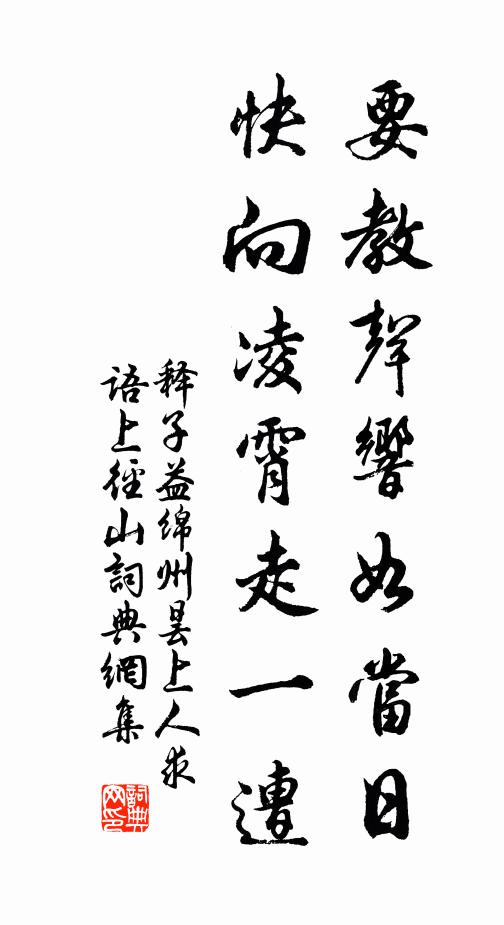 要教聲響如當日
快向凌霄走一遭
释子益绵州昙上人求
语上徑山詞典網集
詞典网印